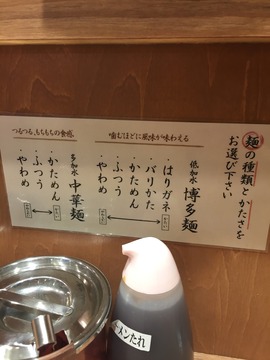 麺の種類とかたさを
お選び下さい
噛むほどに風味が味わえる
低加水 博多麺
・はりガネ
・バリかた
・かためん
・ふつう
・やわめ
つるつる、もちもちの食感
多加水 中華麺
・かためん
・ふつう
・やわめ
ーメンたれ